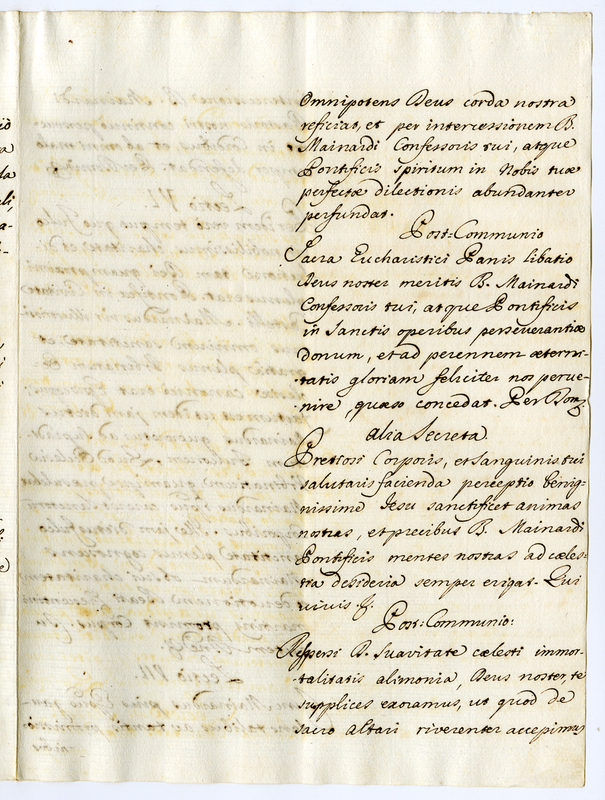 Omnipotens Deus corda nostra
reficiat, et per intercessionem B.
Mainardi Confessoris tui, atque
Pontificis spiritum in Nobis tuæ
perfectæ dilectionis abundanter
perfundat.
Post=Communio
Sacra Eucharistici Panis libatio
Deus noster meritis B. Mainardi
Confessoris tui, atque Pontificis
in Sanctis operibus perseverantiæ
donum, et ad perennem æterni-
tatis gloriam feliciter nos perve-
nire, quæso concedat. Per Dom.
alia Secreta.
Pretiosi Corporis, et Sanguinis tui
salutaris facienda perceptio benig-
nissime Jesu sanctificet animas
nostras, et precibus B. Mainardi
Pontificis mentes nostras ad cæles-
tia desideria semper erigat. Qui
vivis &.
Post=Communio:
Respersi D. Suavitate cælesti immor-
talitatis alimonia, Deus noster, te
supplices exoramus, ut quod de
sacro altari riverenter accepimus